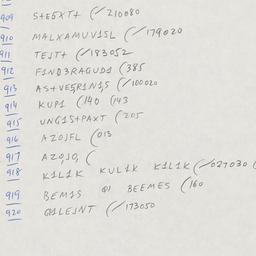 909 S+E5XT+ (✓210080
910 MALXAMUVISL (✓179020
911 TEST+ (✓183052
912 F1ND3RAGUDS (385
913 (✓100020
914 KUP1 (140 (143
915 UNG1S+PAXT (205
916 AZOJFL (013
917 AZOJO, (
918 K1L1K KUL1K K1L1K (✓027030 (
919 BEM1S BEEMES (160
920 (✓173050